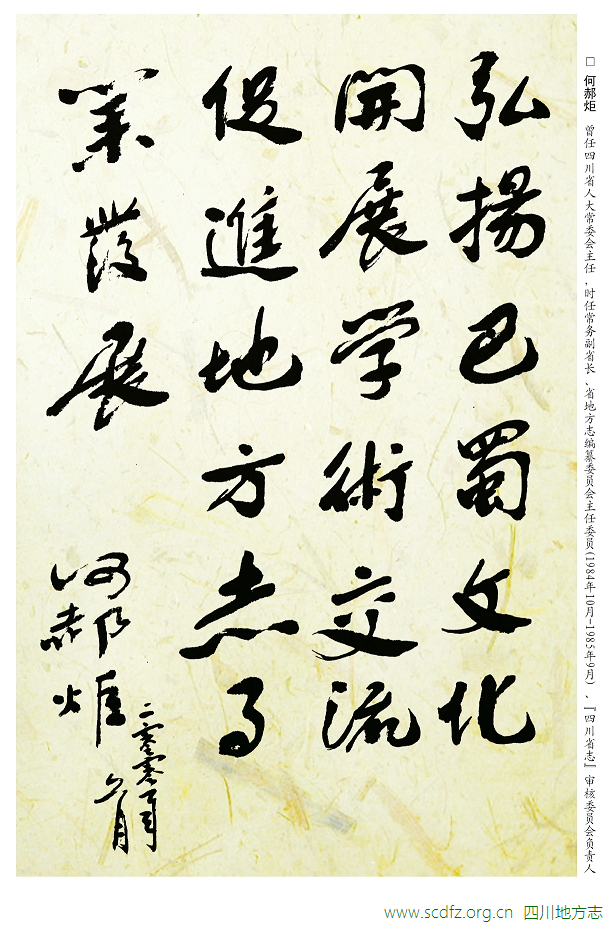 弘揚巴蜀文化
開展学術交流
促進地方志事
業发展
何郝炬
二零零零年
六月
□ 何郝炬 曾任四川省人大常委会主任，时任常务副省长、省地方志编纂委员会主任委员(1984年10月-1985年9月)、『四川省志』审核委员会负责人
www.scdfz.org.cn 四川地方志